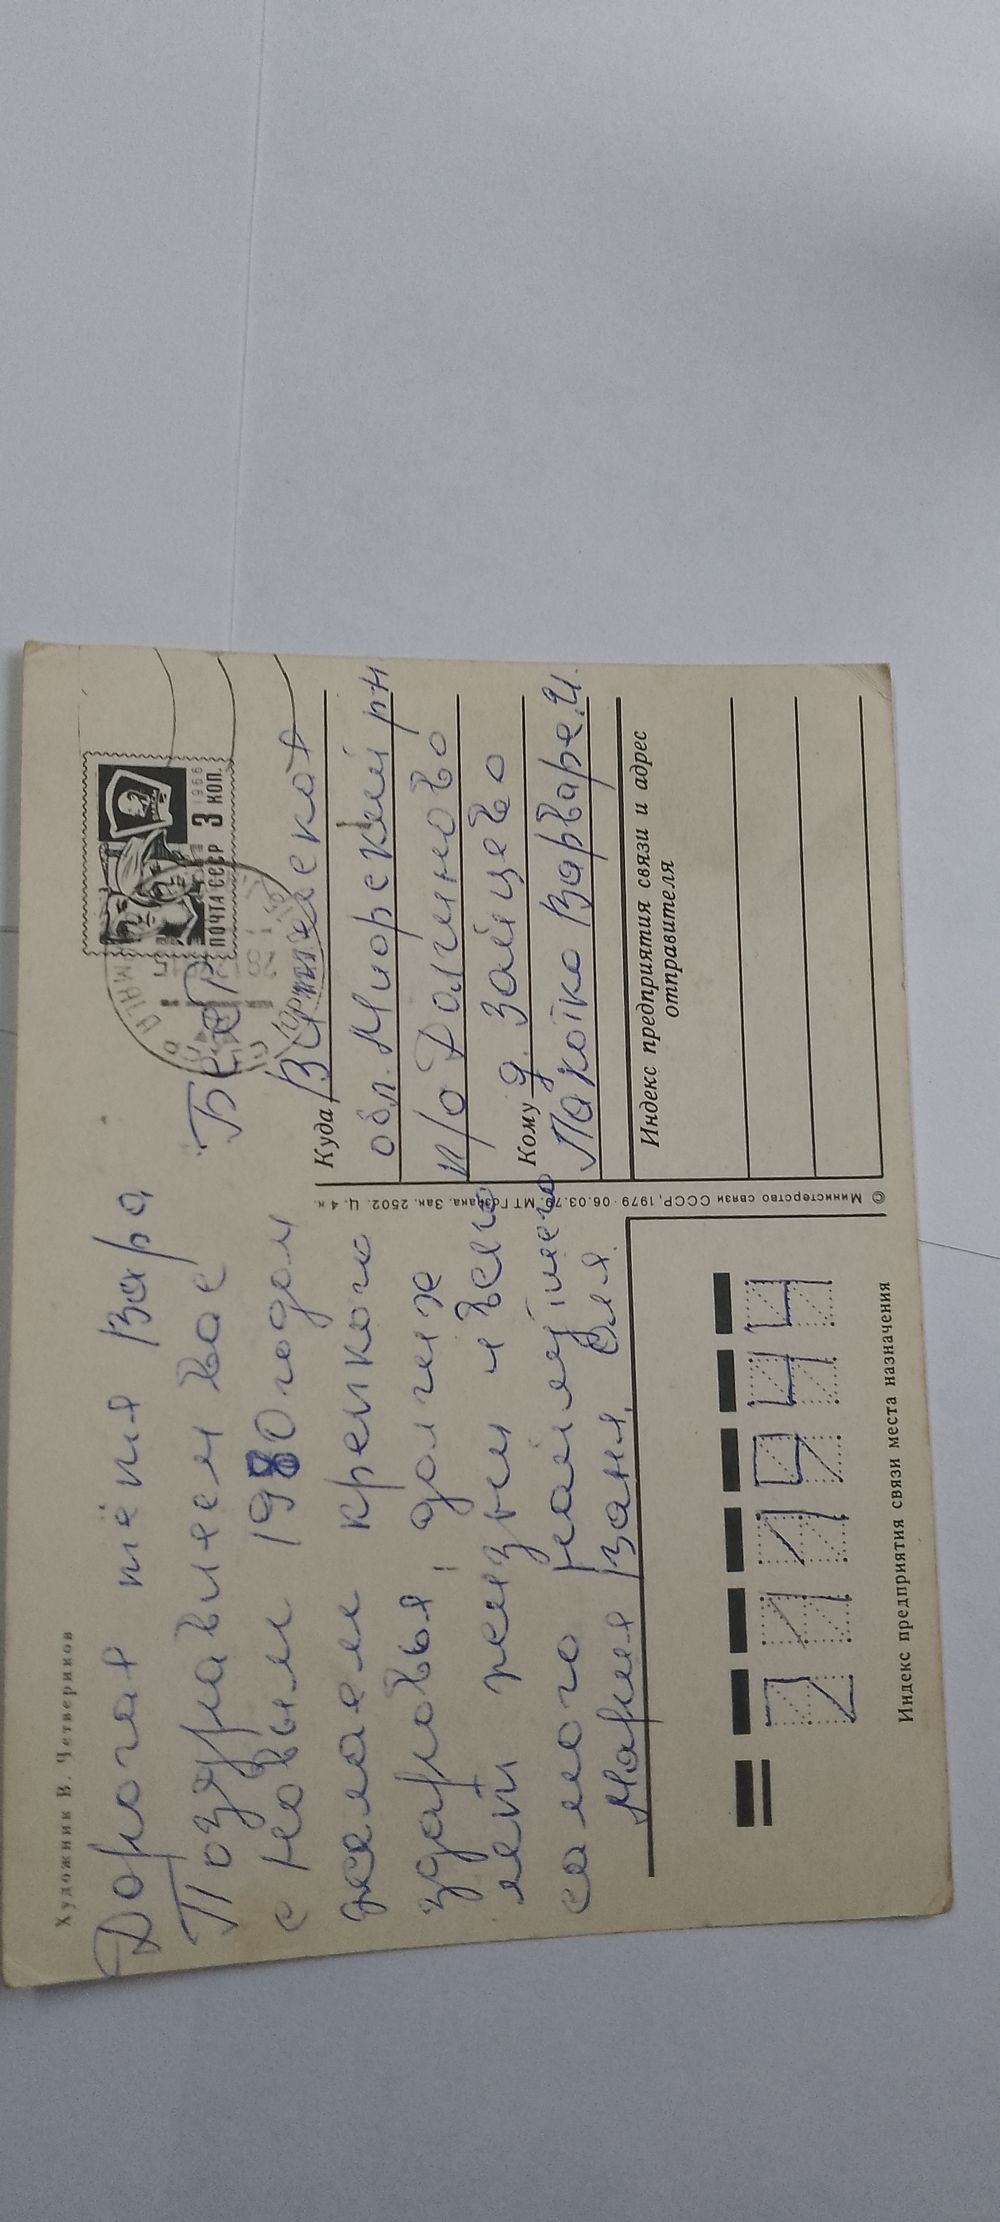 Художник В. Четвериков
Дорогая тётя Вара,
Поздравляем вас
с Новым 1980 годом
желаем крепкого
здаровья, долгих
лет жизни и всего
самого наилучшего
Мария Ваня, Оля.
ПОЧТА СССР 3 КОП.
1966
БССР
Куда Витебская
обл. Миорский рн
п/о Долгиново
Кому д. Зайцево
Лакотко Варваре. И.
Индекс предприятия связи и адрес
отправителя
© Министерство связи СССР, 1979. 06.03.79. МТ Гознака. Зак. 2502. Ц. 4 к.
211944
Индекс предприятия связи места назначения